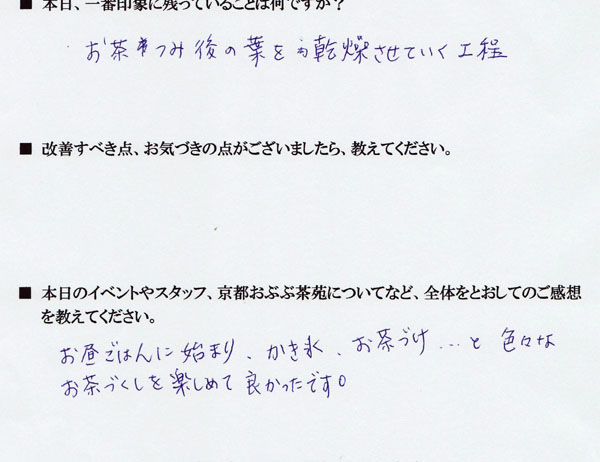 ■ 本日、一番印象に残っていることは何ですか？
お茶つみ後の葉を乾燥させていく工程
■ 改善すべき点、お気づきの点がございましたら、教えてください。
■ 本日のイベントやスタッフ、京都おぶぶ茶苑についてなど、全体をとおしてのご感想
を教えてください。
お昼ごはんに始まり、かき氷、お茶づけ...と色々な
お茶づくしを楽しめて良かったです。